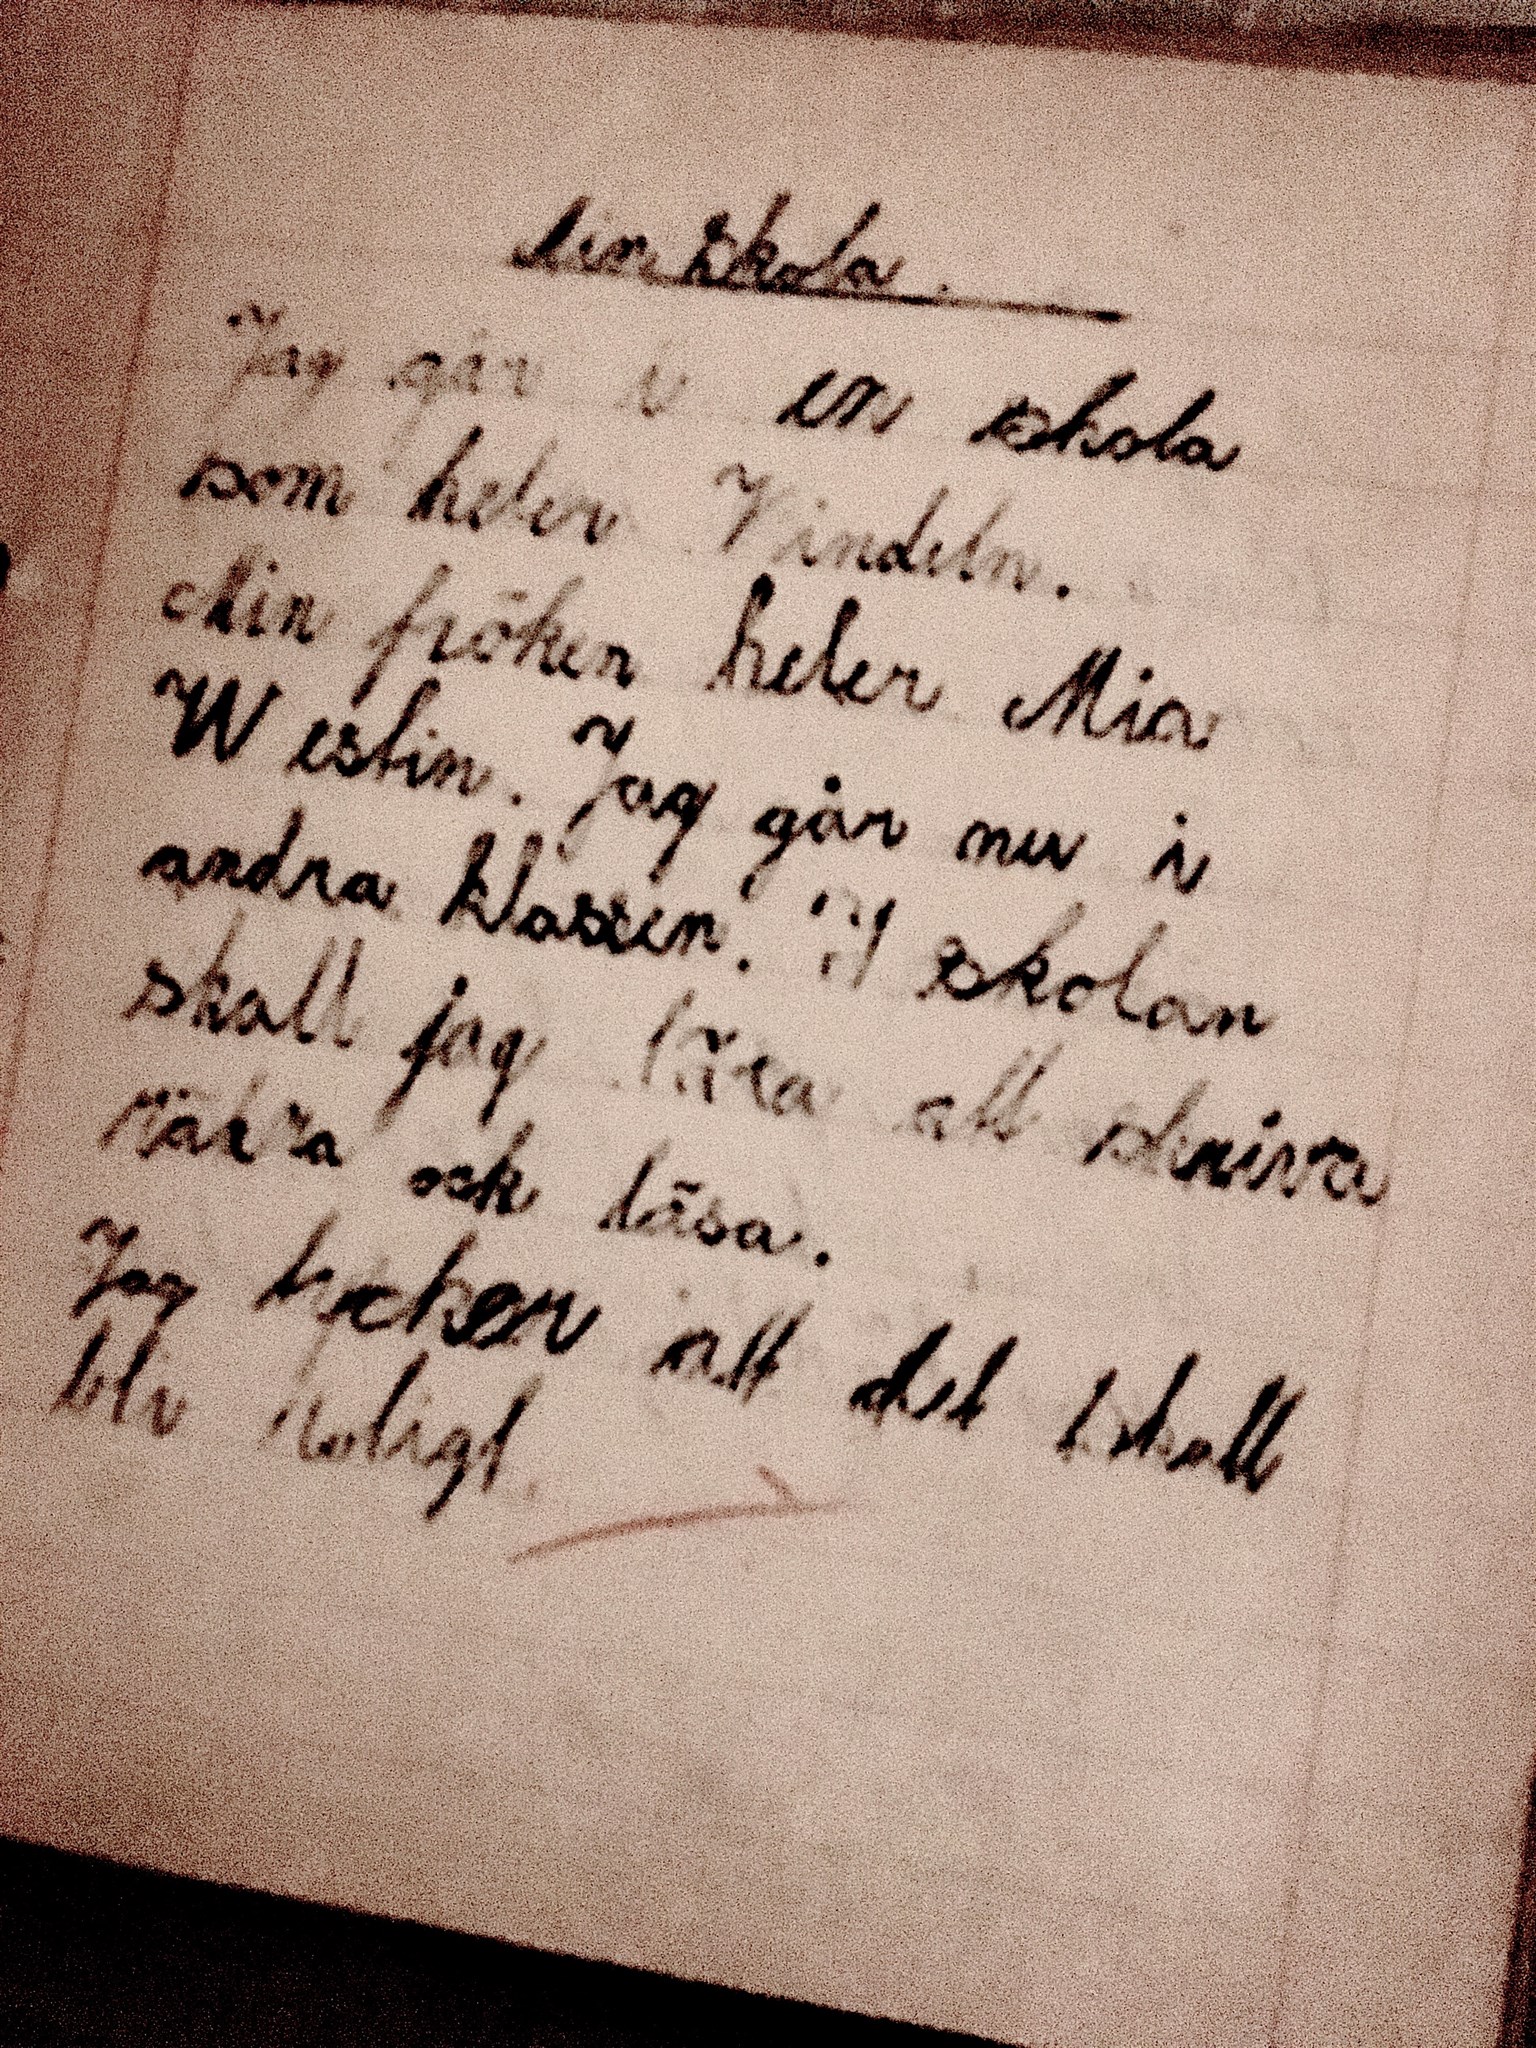 Min skola.
Jag går i en skola
som heter Vindeln.
Min fröken heter Mia
Westin. Jag går nu i
andra klassen. I skolan
skall jag lära att skriva
räkna och läsa.
Jag tycker att det skall
bli roligt.